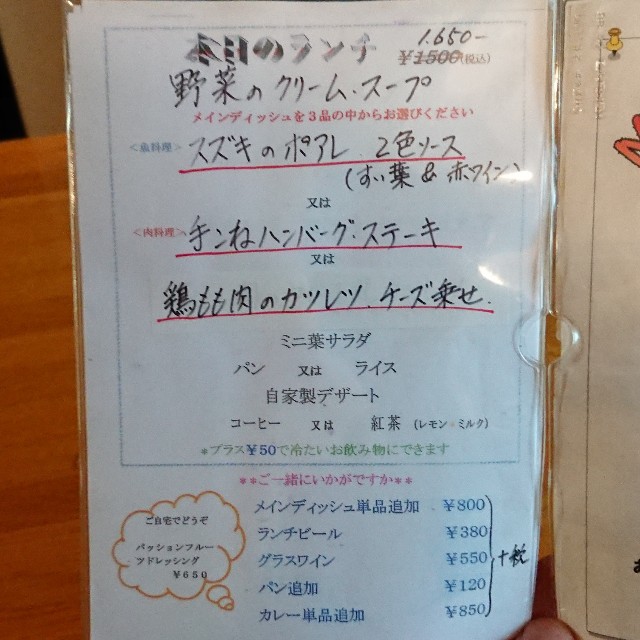 本日のランチ 1.650-
¥1500(税込)
野菜のクリーム・スープ
メインディッシュを3品の中からお選びください
<魚料理> スズキのポアレ、2色ソース
(すい葉 & 赤ワイン)
又は
<肉料理> 手ごねハンバーグ・ステーキ
又は
鶏もも肉のカツレツ、チーズ乗せ.
ミニ葉サラダ
パン 又は ライス
自家製デザート
コーヒー 又は 紅茶 (レモン・ミルク)
*プラス¥50で冷たいお飲み物にできます
**ご一緒にいかがですか**
メインディッシュ単品追加 ¥800
ランチビール ¥380
グラスワイン ¥550
パン追加 ¥120
カレー単品追加 ¥850
+税
ご自宅でどうぞ
パッションフルー
ツドレッシング
¥650